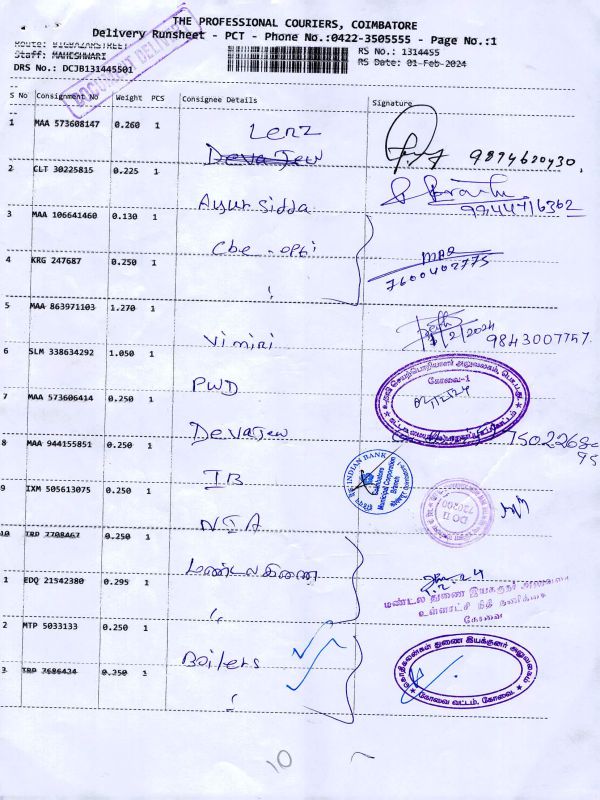 THE PROFESSIONAL COURIERS, COIMBATORE
Delivery Runsheet - PCT - Phone No.:0422-3505555 - Page No.:1
Route: BIGBAZARSTREET
RS No.: 1314455
Staff: MAHESHWARI
RS Date: 01-Feb-2024
DRS No.: DCJB131445501
DOCUMENT DELIVERY
S No Consignment No Weight PCS Consignee Details Signature
1 MAA 573608147 0.260 1 Lenz 9874620430,
Devajew
2 CLT 30225815 0.225 1 Ayur Sidda 9944716362
3 MAA 106641460 0.130 1 Cbe - opbi
4 KRG 247687 0.250 1 " 7600402775
5 MAA 863971103 1.270 1 Vimiri 2/2024 9843007757.
6 SLM 338634292 1.050 1 PWD
கோவை-1
7 MAA 573606414 0.250 1 Devajew 7502268
95
8 MAA 944155851 0.250 1 IB
INDIAN BANK
Coimbatore
Municipal Corporation
Branch
9 IXM 505613075 0.250 1 NIA
DO II
720200
10 TRP 7708467 0.250 1 மண்டலதுணை
1 EDQ 21542380 0.295 1 "
1.2.24
மண்டல துணை இயக்குநர் அலுவலகம்
உள்ளாட்சி நிதி தணிக்கை
கோவை
2 MTP 5033133 0.250 1 Boilers
3 TRP 7686424 0.250 1 "
கொதிகலன்கள் துணை இயக்குனர் அலுவலகம்
கோவை வட்டம், கோவை.
10